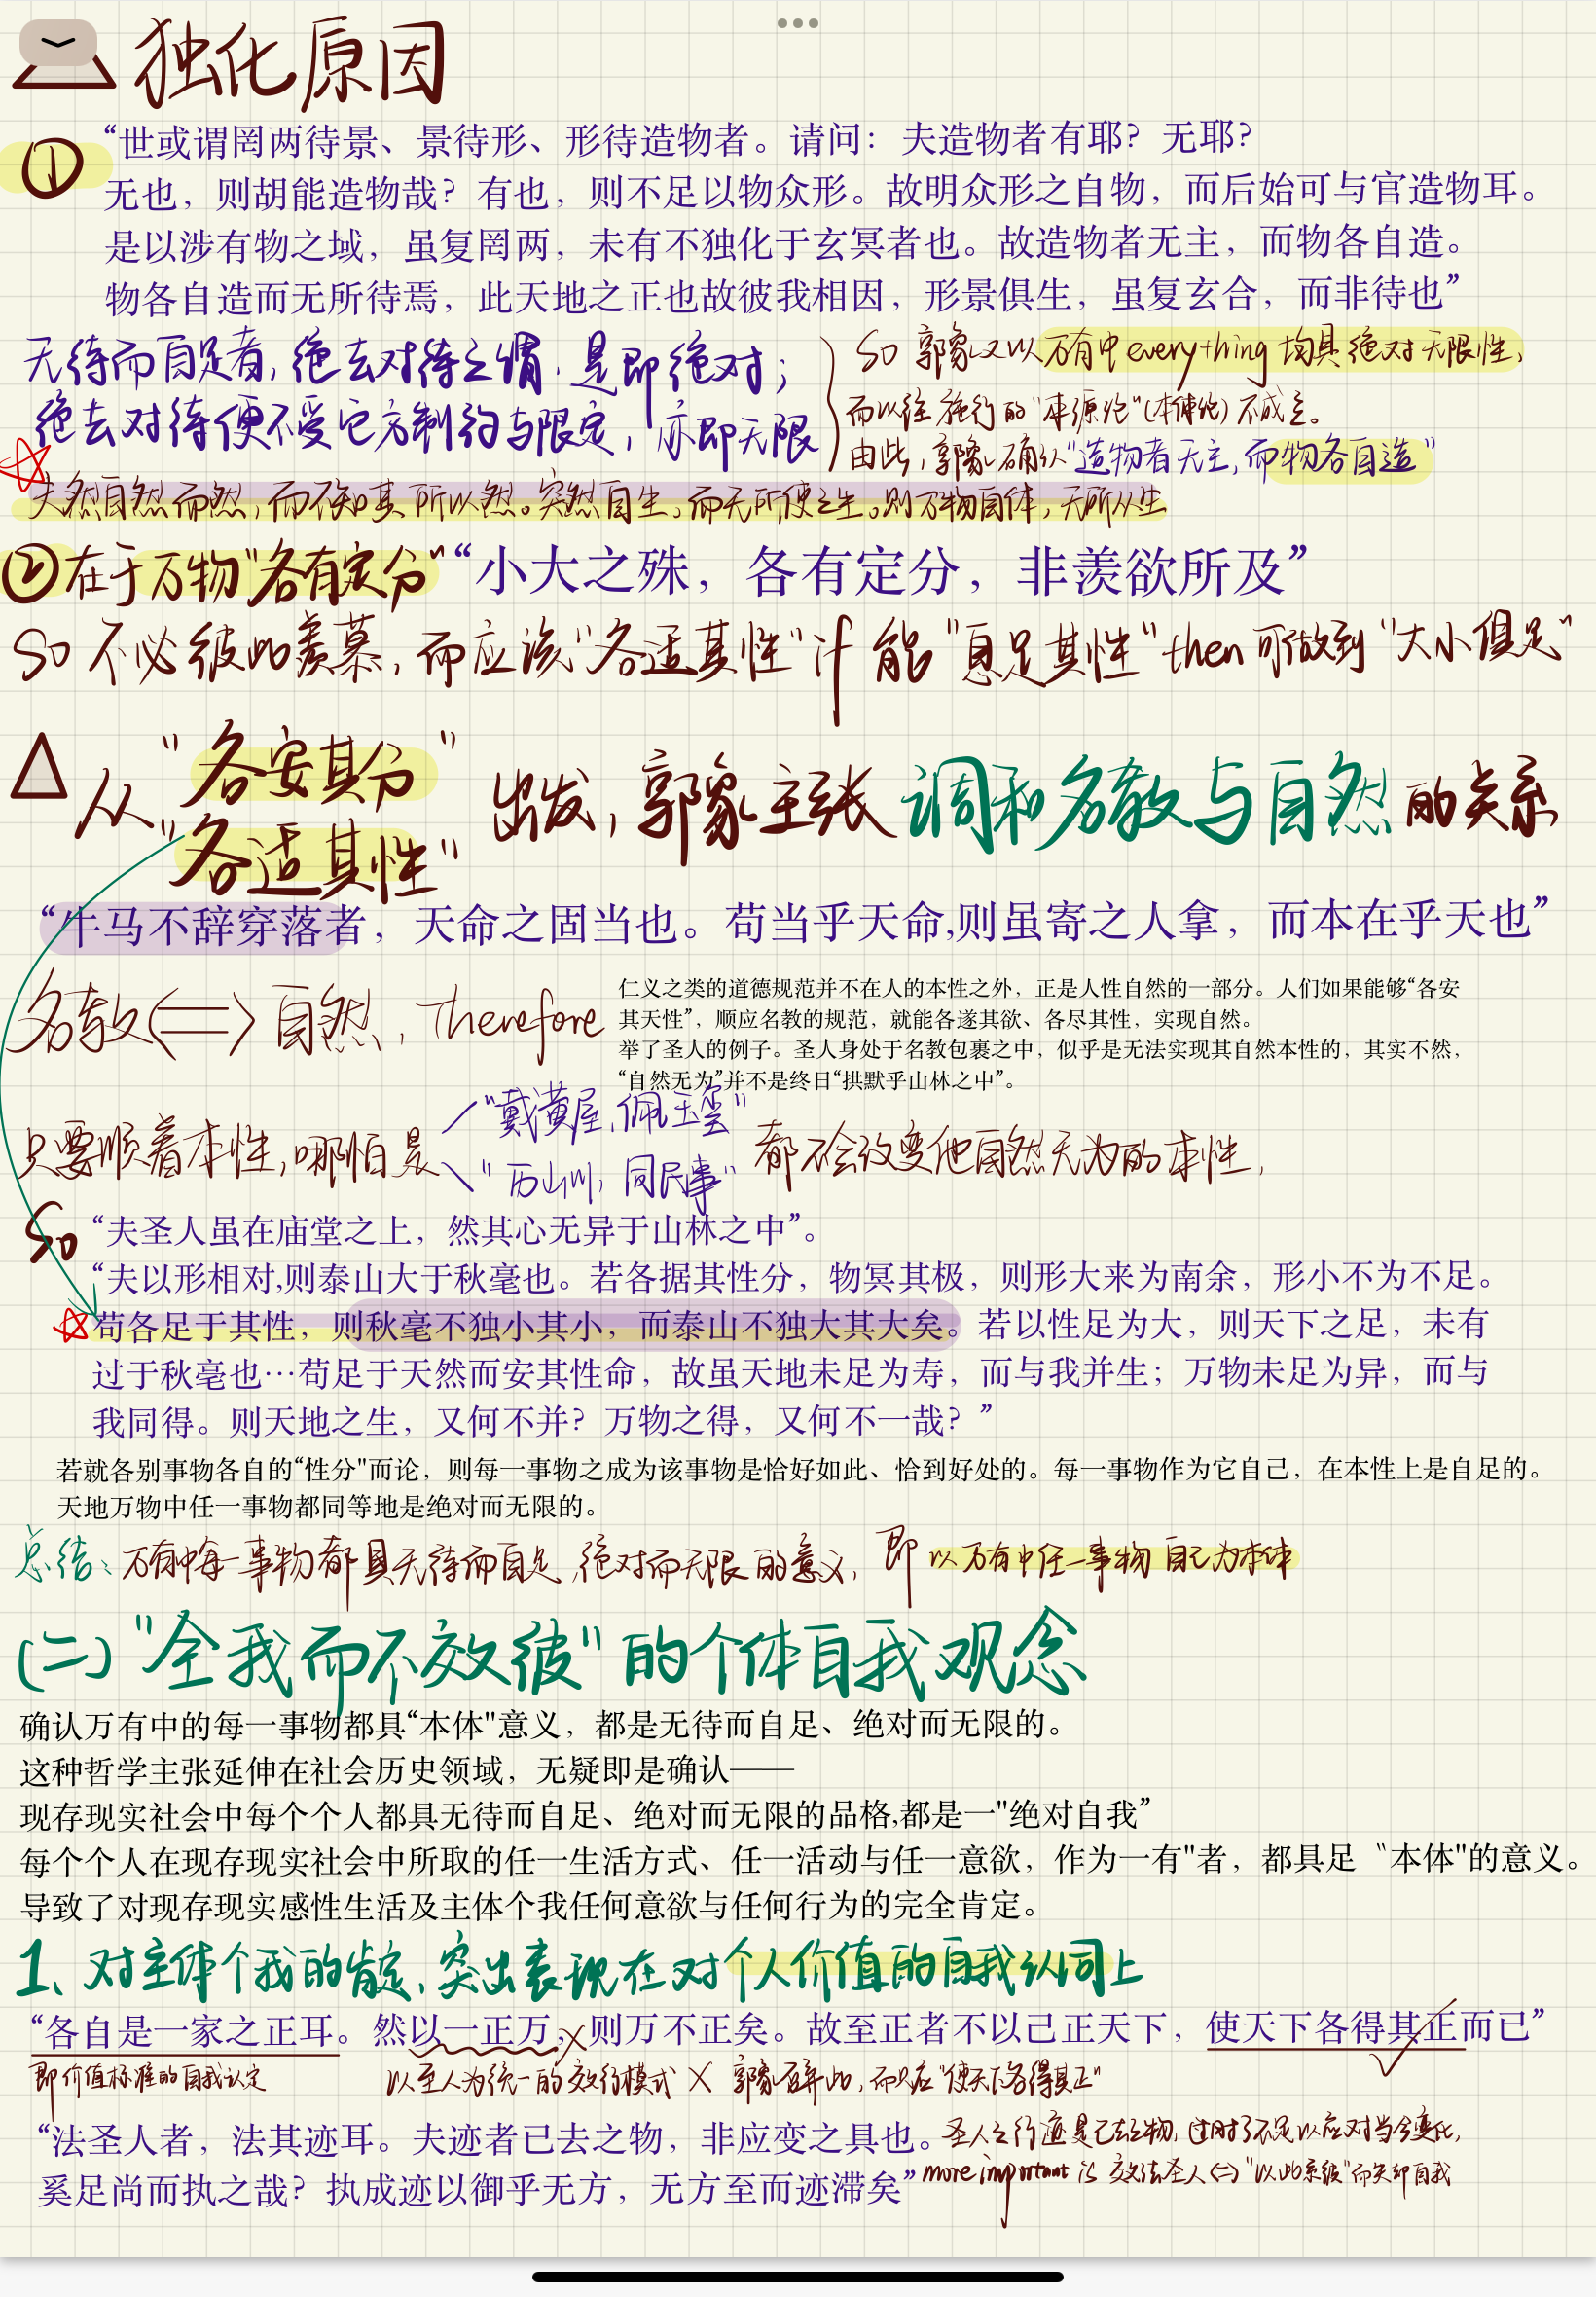 独化原因
① “世或谓罔两待景、景待形、形待造物者。请问：夫造物者有耶？无耶？
无也，则胡能造物哉？有也，则不足以物众形。故明众形之自物，而后始可与官造物耳。
是以涉有物之域，虽复罔两，未有不独化于玄冥者也。故造物者无主，而物各自造。
物各自造而无所待焉，此天地之正也故彼我相因，形景俱生，虽复玄合，而非待也”
无待而自足者，绝去对待之谓，是即绝对；
绝去对待便不受它方制约与限定，亦即无限
So 郭象又以万有中everything 均具绝对无限性，
而以往施行的“本源论”(本体论)不成立。
由此，郭象确认“造物者无主，而物各自造”
夫然自然而然，而不知其所以然。突然自生，而无所使之生。则万物自体，无所从生
② 在于万物“各有定分”“小大之殊，各有定分，非羡欲所及”
So 不必彼此羡慕，而应该“各适其性”才能“自足其性”then可做到“大小俱足”
从“各安其分”
“各适其性”
出发，郭象主张调和名教与自然的关系
“牛马不辞穿落者，天命之固当也。苟当乎天命,则虽寄之人拿，而本在乎天也”
名教<=>自然，Therefore
仁义之类的道德规范并不在人的本性之外，正是人性自然的一部分。人们如果能够“各安
其天性”，顺应名教的规范，就能各遂其欲、各尽其性，实现自然。
举了圣人的例子。圣人身处于名教包裹之中，似乎是无法实现其自然本性的，其实不然，
“自然无为”并不是终日“拱默乎山林之中”。
只要顺着本性，哪怕是
“戴黄屋，佩玉玺”
“历山川，同民事”
都不会改变他自然无为的本性，
So “夫圣人虽在庙堂之上，然其心无异于山林之中”。
“夫以形相对,则泰山大于秋毫也。若各据其性分，物冥其极，则形大来为南余，形小不为不足。
苟各足于其性，则秋毫不独小其小，而泰山不独大其大矣。若以性足为大，则天下之足，未有
过于秋亳也…苟足于天然而安其性命，故虽天地未足为寿，而与我并生；万物未足为异，而与
我同得。则天地之生，又何不并？万物之得，又何不一哉？”
若就各别事物各自的“性分"而论，则每一事物之成为该事物是恰好如此、恰到好处的。每一事物作为它自己，在本性上是自足的。
天地万物中任一事物都同等地是绝对而无限的。
总结：万有中每一事物都具无待而自足，绝对而无限的意义，即以万有中任一事物自己为本体
(二)“全我而不效彼”的个体自我观念
确认万有中的每一事物都具“本体"意义，都是无待而自足、绝对而无限的。
这种哲学主张延伸在社会历史领域，无疑即是确认——
现存现实社会中每个个人都具无待而自足、绝对而无限的品格,都是一"绝对自我”
每个个人在现存现实社会中所取的任一生活方式、任一活动与任一意欲，作为一有"者，都具足〝本体"的意义。
导致了对现存现实感性生活及主体个我任何意欲与任何行为的完全肯定。
1、对主体个我的肯定，突出表现在对个人价值的自我认同上
“各自是一家之正耳。然以一正万，则万不正矣。故至正者不以己正天下，使天下各得其正而已”
即价值标准的自我认定
以圣人为统一的效行模式 X 郭象否弃此，而只应“使天下各得其正”
“法圣人者，法其迹耳。夫迹者已去之物，非应变之具也。
奚足尚而执之哉？执成迹以御乎无方，无方至而迹滞矣”
圣人之行迹是已去之物，过时了不足以应对当今变化，
more important is 效法圣人(=)“以此系彼”而失却自我